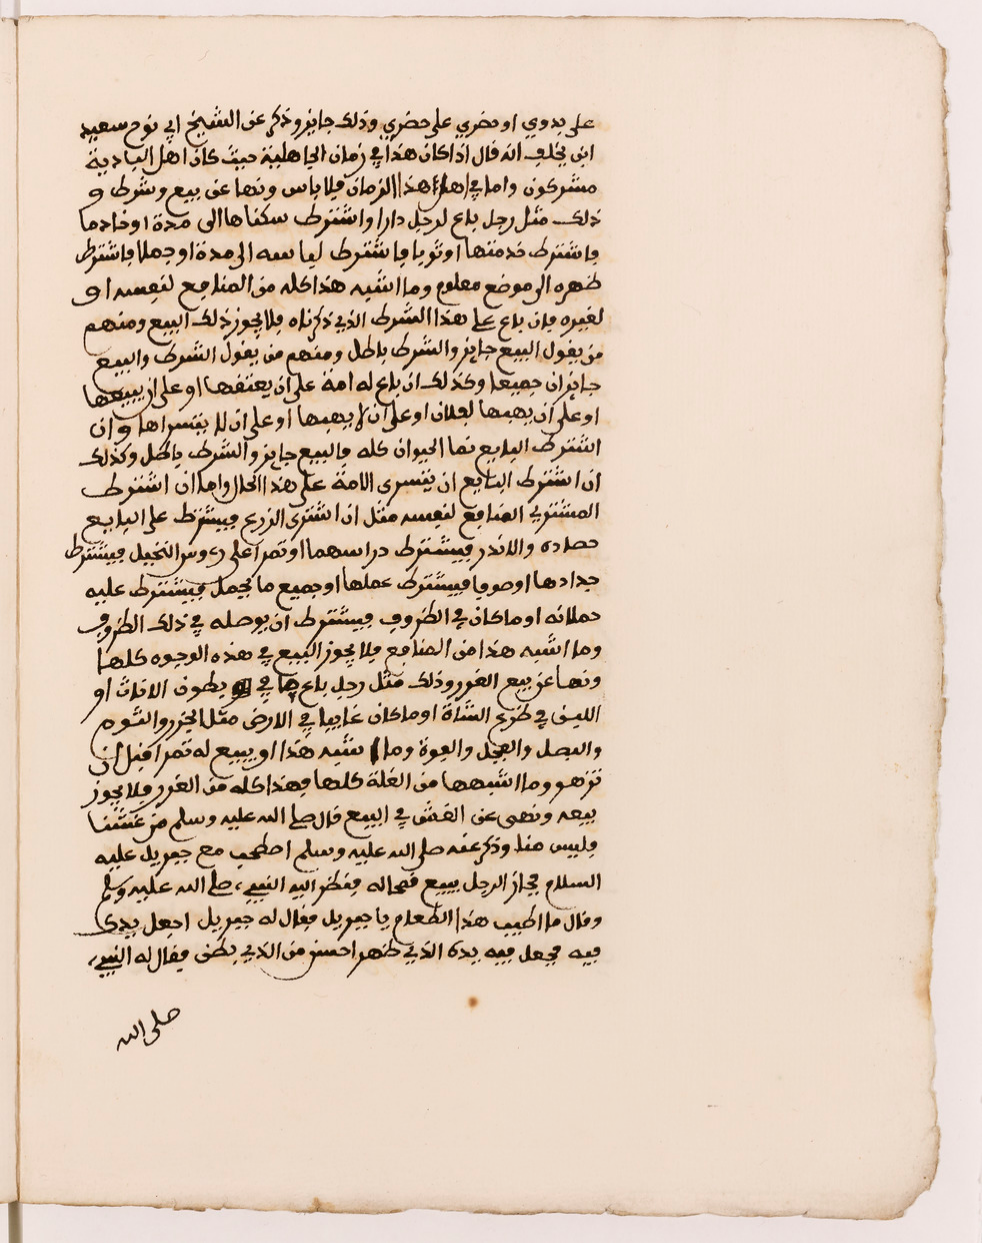 على بدوي او حضري على حضري وذلك جايز وذكر عن الشيخ ابي نوح سعيد
ابن يخلف انه قال اذا كان هذا في زمان الجاهلية حيث كان اهل البادية
مشركون واما في اهل هذا الزمان فلا باس ونها عن بيع وشرط و
ذلك مثل رجل باع لرجل دارا واشترط سكناها الى مدة او خادما
فاشترط خدمتها او ثوبا فاشترط لباسه الى مدة او جملا فاشترط
ظهره الى موضع معلوم وما اشبه هذا كله من المنافع لنفسه او
لغيره فان باع على هذا الشرط الذي ذكرناه فلا يجوز ذلك البيع ومنهم
من يقول البيع جايز والشرط باطل ومنهم من يقول الشرط والبيع
جايزان جميعا وكذلك ان باع له امة على ان يعتقها او على ان يبيعها
او على ان يهبها لفلان او على ان لا يهبها او على ان لا يتسراها وان
اشترط البايع نما الحيوان كله فالبيع جايز والشرط باطل وكذلك
ان اشترط البايع ان يتسرى الامة على هذا الحال واما ان اشترط
المشتري المنافع لنفسه مثل ان اشترى الزرع فيشترط على البايع
حصاده والاندر فيشترط دراسهما او تمرا على رءوس النخيل فيشترط
جدادها او صوفا فيشترط عملها او جميع ما يحمل فيشترط عليه
حملانه او ما كان في الظروف فيشترط ان يوصله في ذلك الظروف
وما اشبه هذا من المنافع فلا يجوز البيع في هذه الوجوه كلها
ونها عن بيع الغرر وذلك مثل رجل باع ما في بطون الاناث او
اللبن في ضرع الشاة او ما كان غايبا في الارض مثل الجزر والثوم
والبصل والفجل والفوة وما اشبه هذا او يبيع له تمرا قبل ان
تزهو وما اشبهها من الغلة كلها فهذا كله من الغرر فلا يجوز
بيعه ونهى عن الغش في البيع قال صلى الله عليه وسلم من غشنا
فليس منا وذكر عنه صلى الله عليه وسلم اصطحب مع جبريل عليه
السلام فجاز الرجل يبيع قمحا له فنظر اليه النبيء صلى الله عليه وسلم
وقال ما اطيب هذا الطعام يا جبريل فقال له جبريل اجعل يدك
فيه فجعل فيه يده الذي ظهر احسن من الذي بطن فقال له النبيء
صلى الله